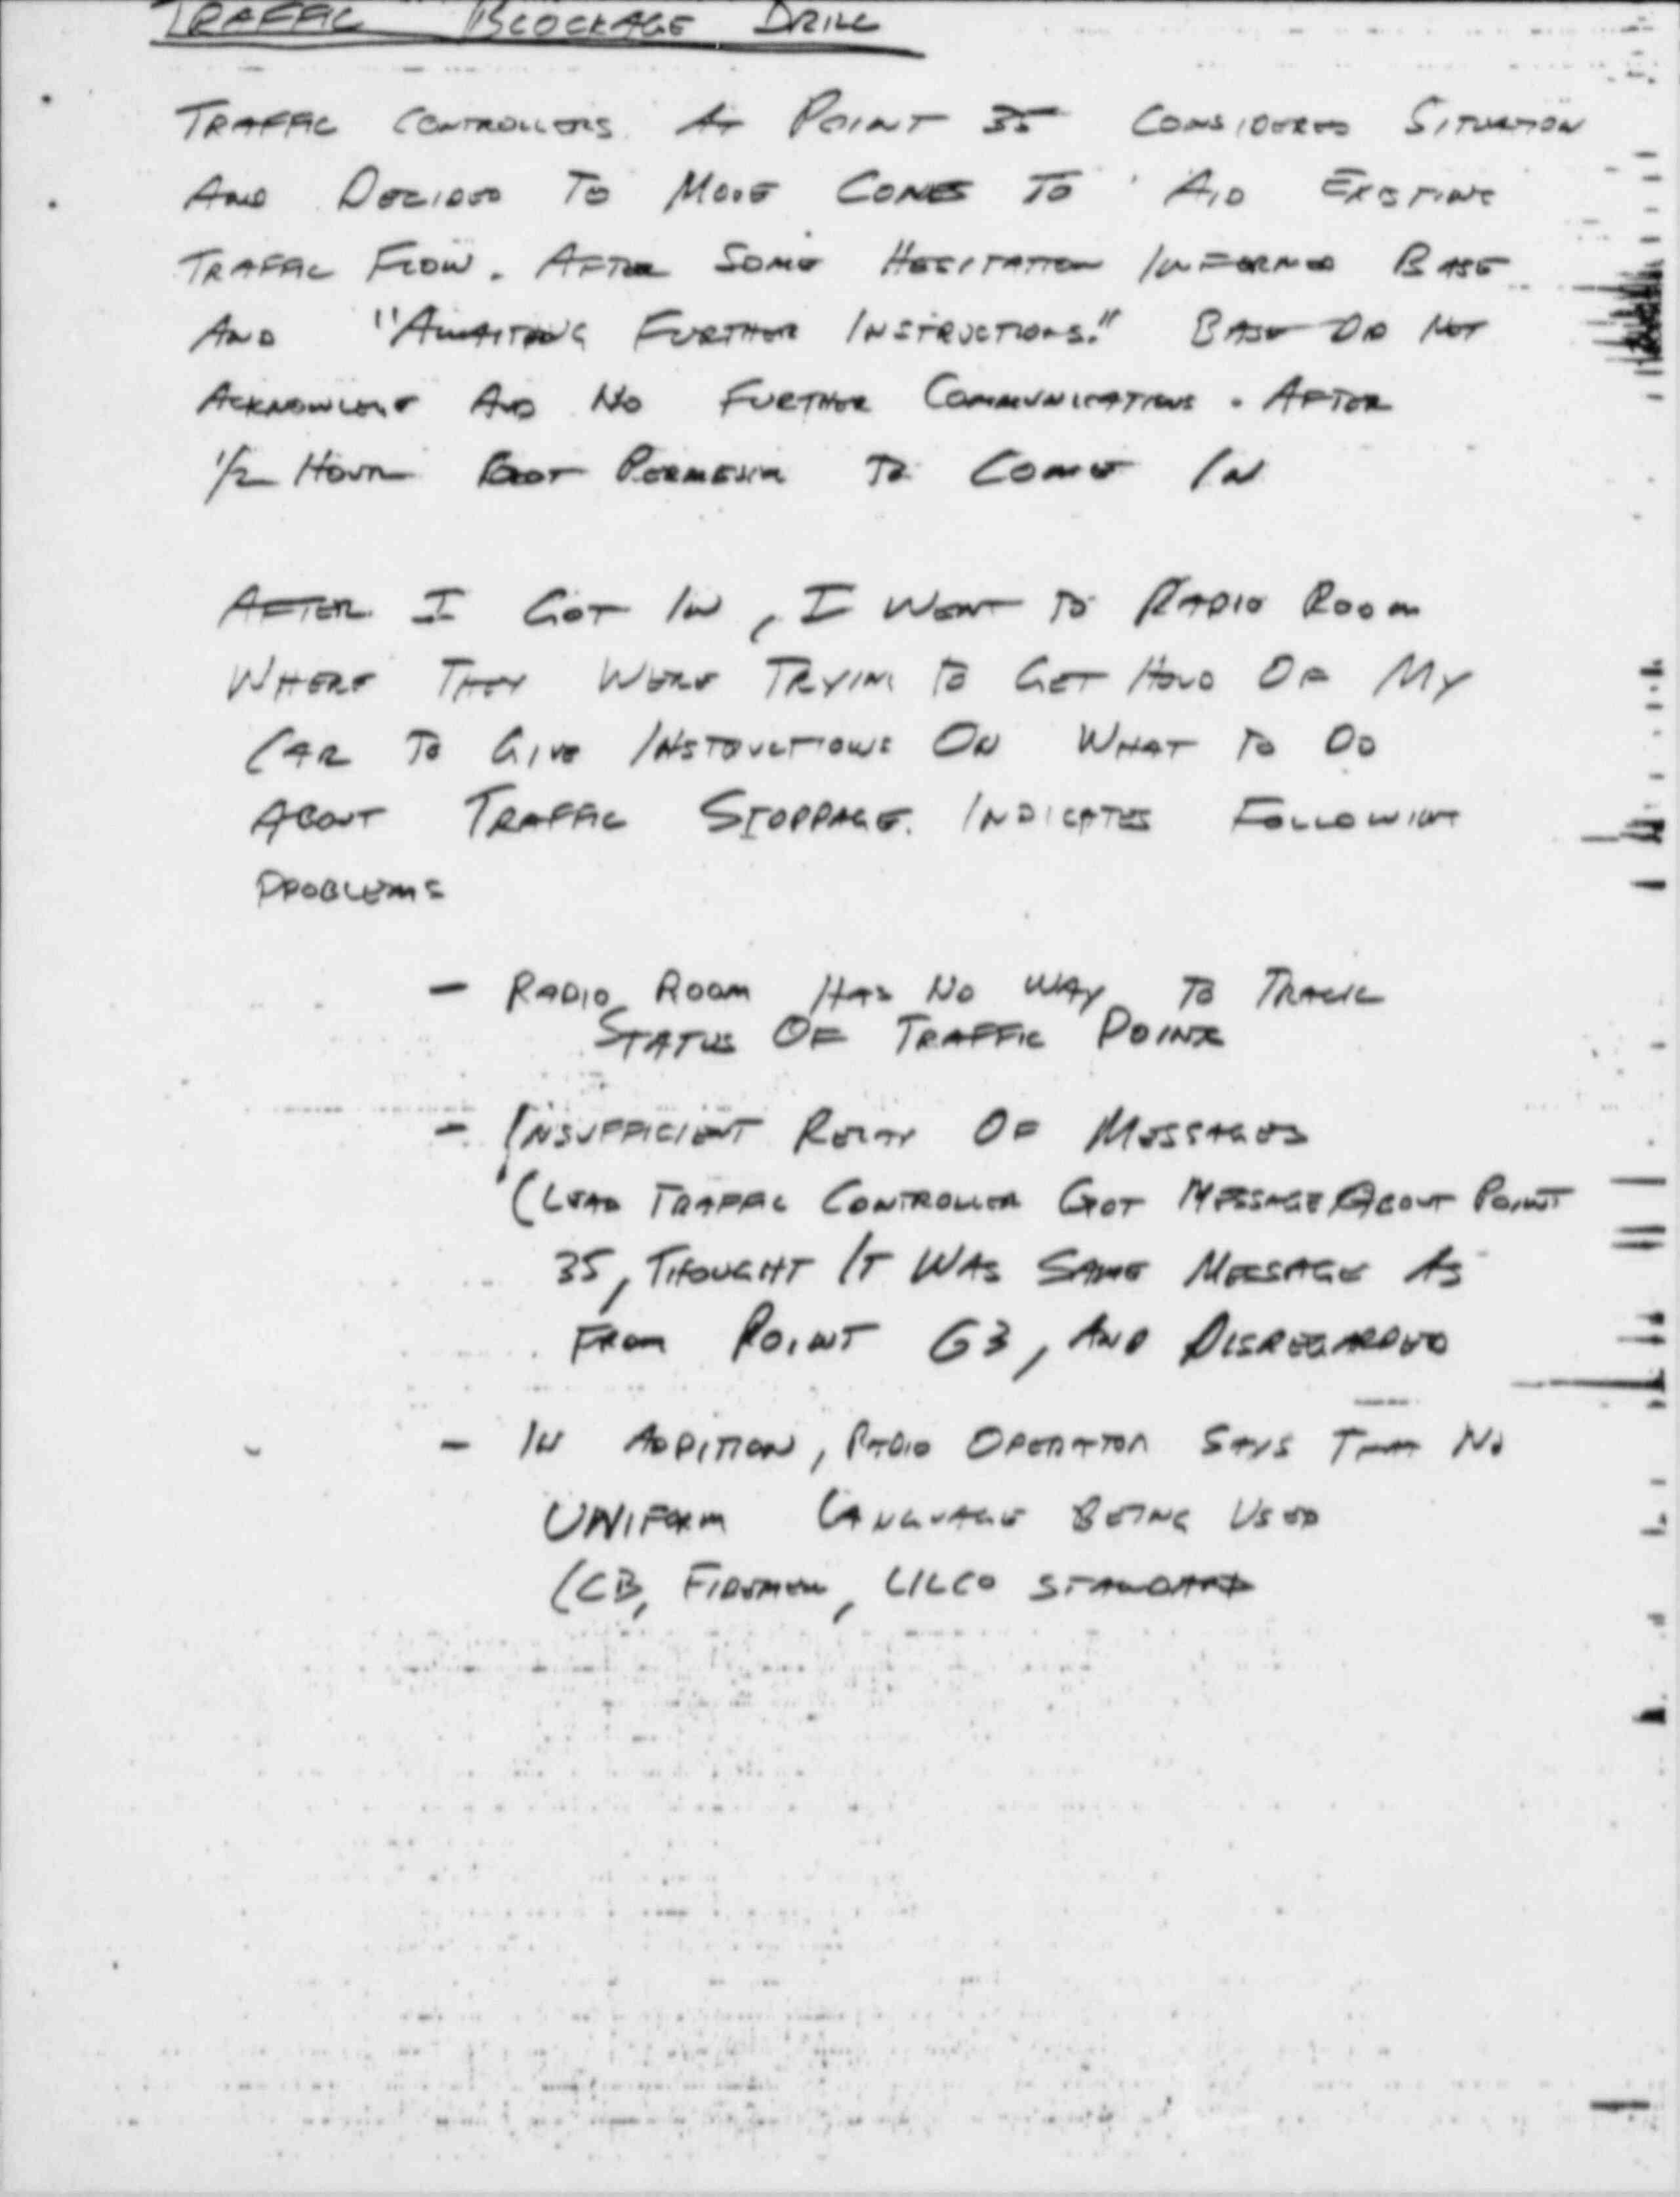 TRAFFIC BLOCKAGE DRILL
TRAFFIC CONTROLLERS AT POINT 35 CONSIDERED SITUATION
AND DECIDED TO MOVE CONES TO AID EXISTING
TRAFFIC FLOW. AFTER SOME HESITATION INFORMED BASE
AND "AWAITING FURTHER INSTRUCTIONS." BASE DID NOT
ACKNOWLEDGE AND NO FURTHER COMMUNICATIONS. AFTER
1/2 HOUR GOT PERMISSION TO COME IN
AFTER I GOT IN, I WENT TO RADIO ROOM
WHERE THEY WERE TRYING TO GET HOLD OF MY
CAR TO GIVE INSTRUCTIONS ON WHAT TO DO
ABOUT TRAFFIC STOPPAGE. INDICATES FOLLOWING
PROBLEMS
- RADIO ROOM HAS NO WAY TO TRACK
STATUS OF TRAFFIC POINTS
- INSUFFICIENT RELAY OF MESSAGES
(LEAD TRAFFIC CONTROLLER GOT MESSAGE ABOUT POINT
35, THOUGHT IT WAS SAME MESSAGE AS
FROM POINT 63, AND DISREGARDED
- IN ADDITION, RADIO OPERATOR SAYS THAT NO
UNIFORM LANGUAGE BEING USED
(CB, FIREMEN, LILCO STANDARD